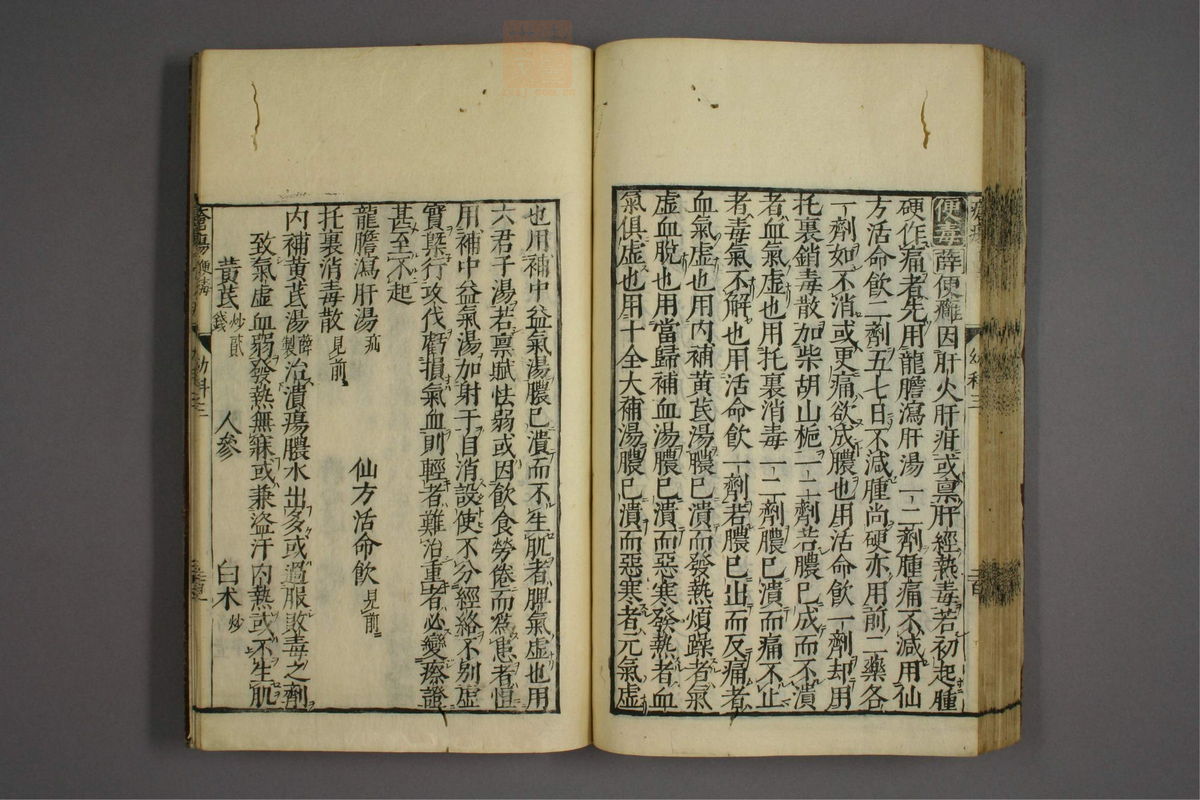 便毒薛便癰因肝火肝疳或稟肝經熱毒若初起腫
硬作痛者先用龍膽瀉肝湯一二劑腫痛不減用仙
方活命飲二劑五七日不減腫尚硬亦用前二藥各
一劑如不消或更痛欲成膿也用活命飲一劑却用
托裏銷毒散加柴胡山梔一二劑若膿已成而不潰
者血氣虛也用托裏消毒一二劑膿已潰而痛不止
者毒氣不解也用活命飲一劑若膿已出而反痛者
血氣虛也用內補黃芪湯膿已潰而發熱煩躁者氣
虛血脫也用當歸補血湯膿已潰而惡寒發熱者血
氣俱虛也用十全大補湯膿已潰而惡寒者元氣虛
幼科三
也用補中益氣湯膿已潰而不生肌者脾氣虛也用
六君子湯若禀賦怯弱或因飲食勞倦而為患者惟
用補中益氣湯加射干自消設使不分經絡不別虛
實槩行攻伐虧損氣血則輕者難治重者必變瘵證
甚至不起
龍膽瀉肝湯 疝 仙方活命飲 見前
托裏消毒散 見前
內補黃芪湯 薛製 治潰瘍膿水出多或過服敗毒之劑
致氣虛血弱發熱無寐或兼盜汗內熱或不生肌
黃芪 炒貳錢 人參 白朮 炒
瘡瘍 幼科三